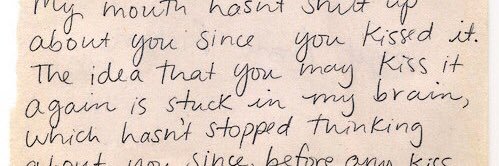 My mouth hasn't shut up
about you since you kissed it.
The idea that you may kiss it
again is stuck in my brain,
which hasn't stopped thinking
about you since before any kiss